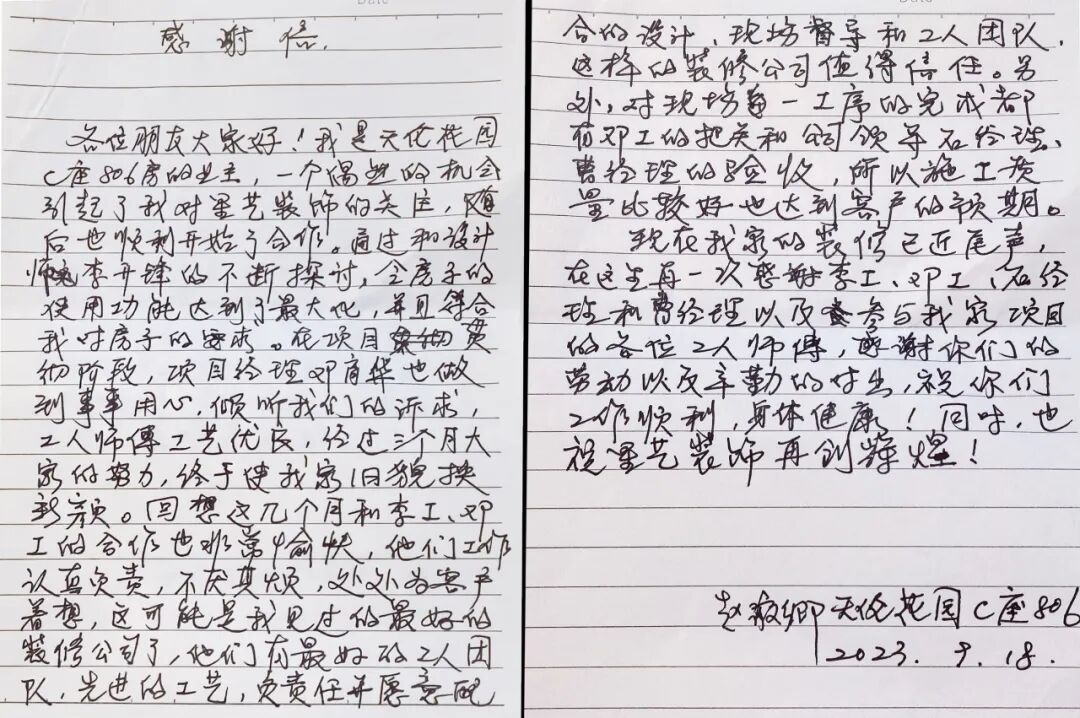 Date
感谢信.
各位朋友大家好！我是天伦花园
C座806房的业主，一个偶然的机会
引起了我对星艺装饰的关注，随
后也顺利开始了合作。通过和设计
师李开锋的不断探讨，令房子的
使用功能达到了最大化，并且符合
我对房子的要求。在项目贯
彻阶段，项目经理邓育华也做
到事事用心，倾听我们的诉求，
工人师傅工艺优良，经过三个月大
家的努力，终于使我家旧貌换
新颜。回想这几个月和李工、邓
工的合作也非常愉快，他们工作
认真负责，不厌其烦，处处为客户
着想，这可能是我见过的最好的
装修公司了，他们有最好的工人团
队、先进的工艺，负责任并愿意配
Date
合的设计、现场督导和工人团队，
这样的装修公司值得信任。另
外，对现场每一工序的完成都
有邓工的把关和公司领导石经理、
曹经理的验收，所以施工质
量比较好也达到客户的预期。
现在我家的装修已近尾声，
在这里再一次感谢李工、邓工、石经
理和曹经理以及参与我家项目
的各位工人师傅，感谢你们的
劳动以及辛勤的付出，祝你们
工作顺利，身体健康！同时，也
祝星艺装饰再创辉煌！
赵敬卿 天伦花园C座806
2023. 9. 18.